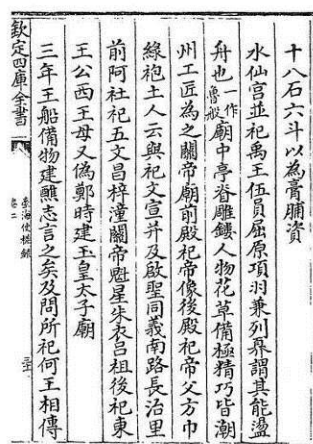 十八石六斗以為膏脯資
水仙宮並祀禹王伍員屈原項羽兼列奡謂其能盪
舟也一作魯般廟中亭脊雕鏤人物花草備極精巧皆潮
州工匠為之關帝廟前殿祀帝像後殿祀帝父方巾
綠袍土人云與祀文宣并及啟聖同義南路長治里
前阿社祀五文昌梓潼關帝魁星朱衣呂祖後祀東
王公西王母又偽鄭時建玉皇太子廟
三年王船備物建醮志言之矣及問所祀何王相傳
欽定四庫全書
臺海使槎錄
卷二